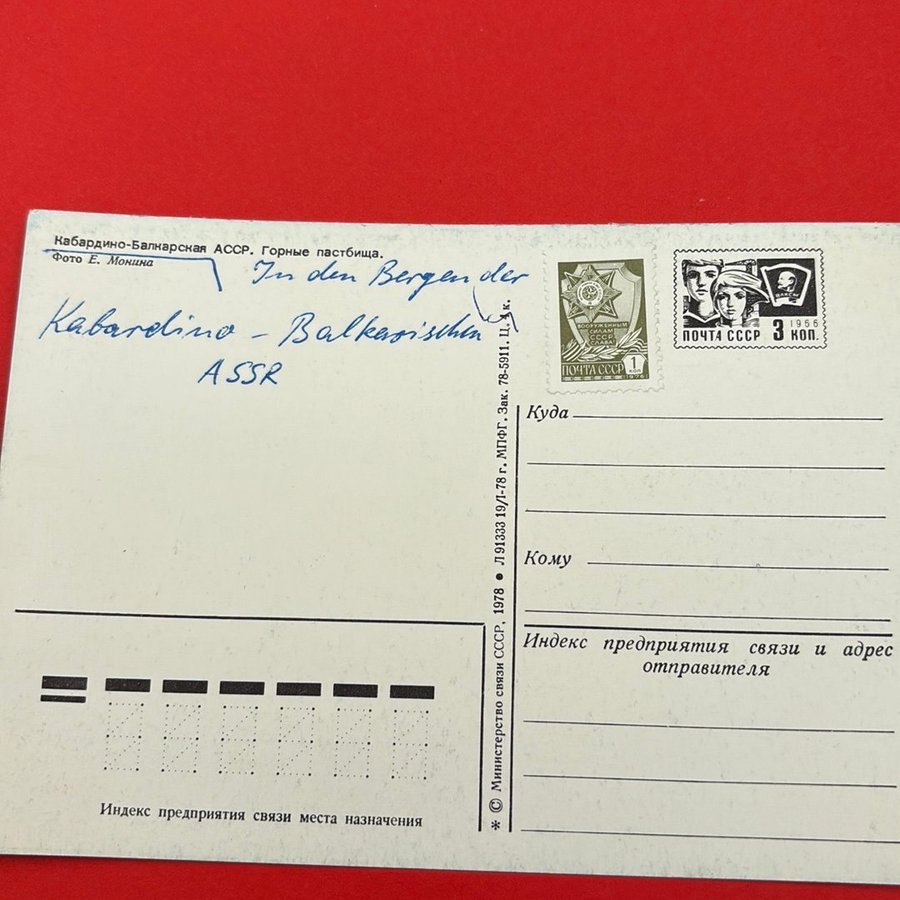 Кабардино-Балкарская АССР. Горные пастбища.
Фото Е. Монина
In den Bergen der
Kabardino - Balkarischen
ASSR
ВООРУЖЕННЫМ
СИЛАМ
СССР
СЛАВА!
ПОЧТА СССР 1 КОП
1976
ВЛКСМ
1966
ПОЧТА СССР 3 КОП.
✻ © Министерство связи СССР, 1978 ● Л 91333 19/I-78 г. МПФГ. Зак. 78-5911. Ц. 4 к.
Куда
Кому
Индекс предприятия связи и адрес
отправителя
Индекс предприятия связи места назначения